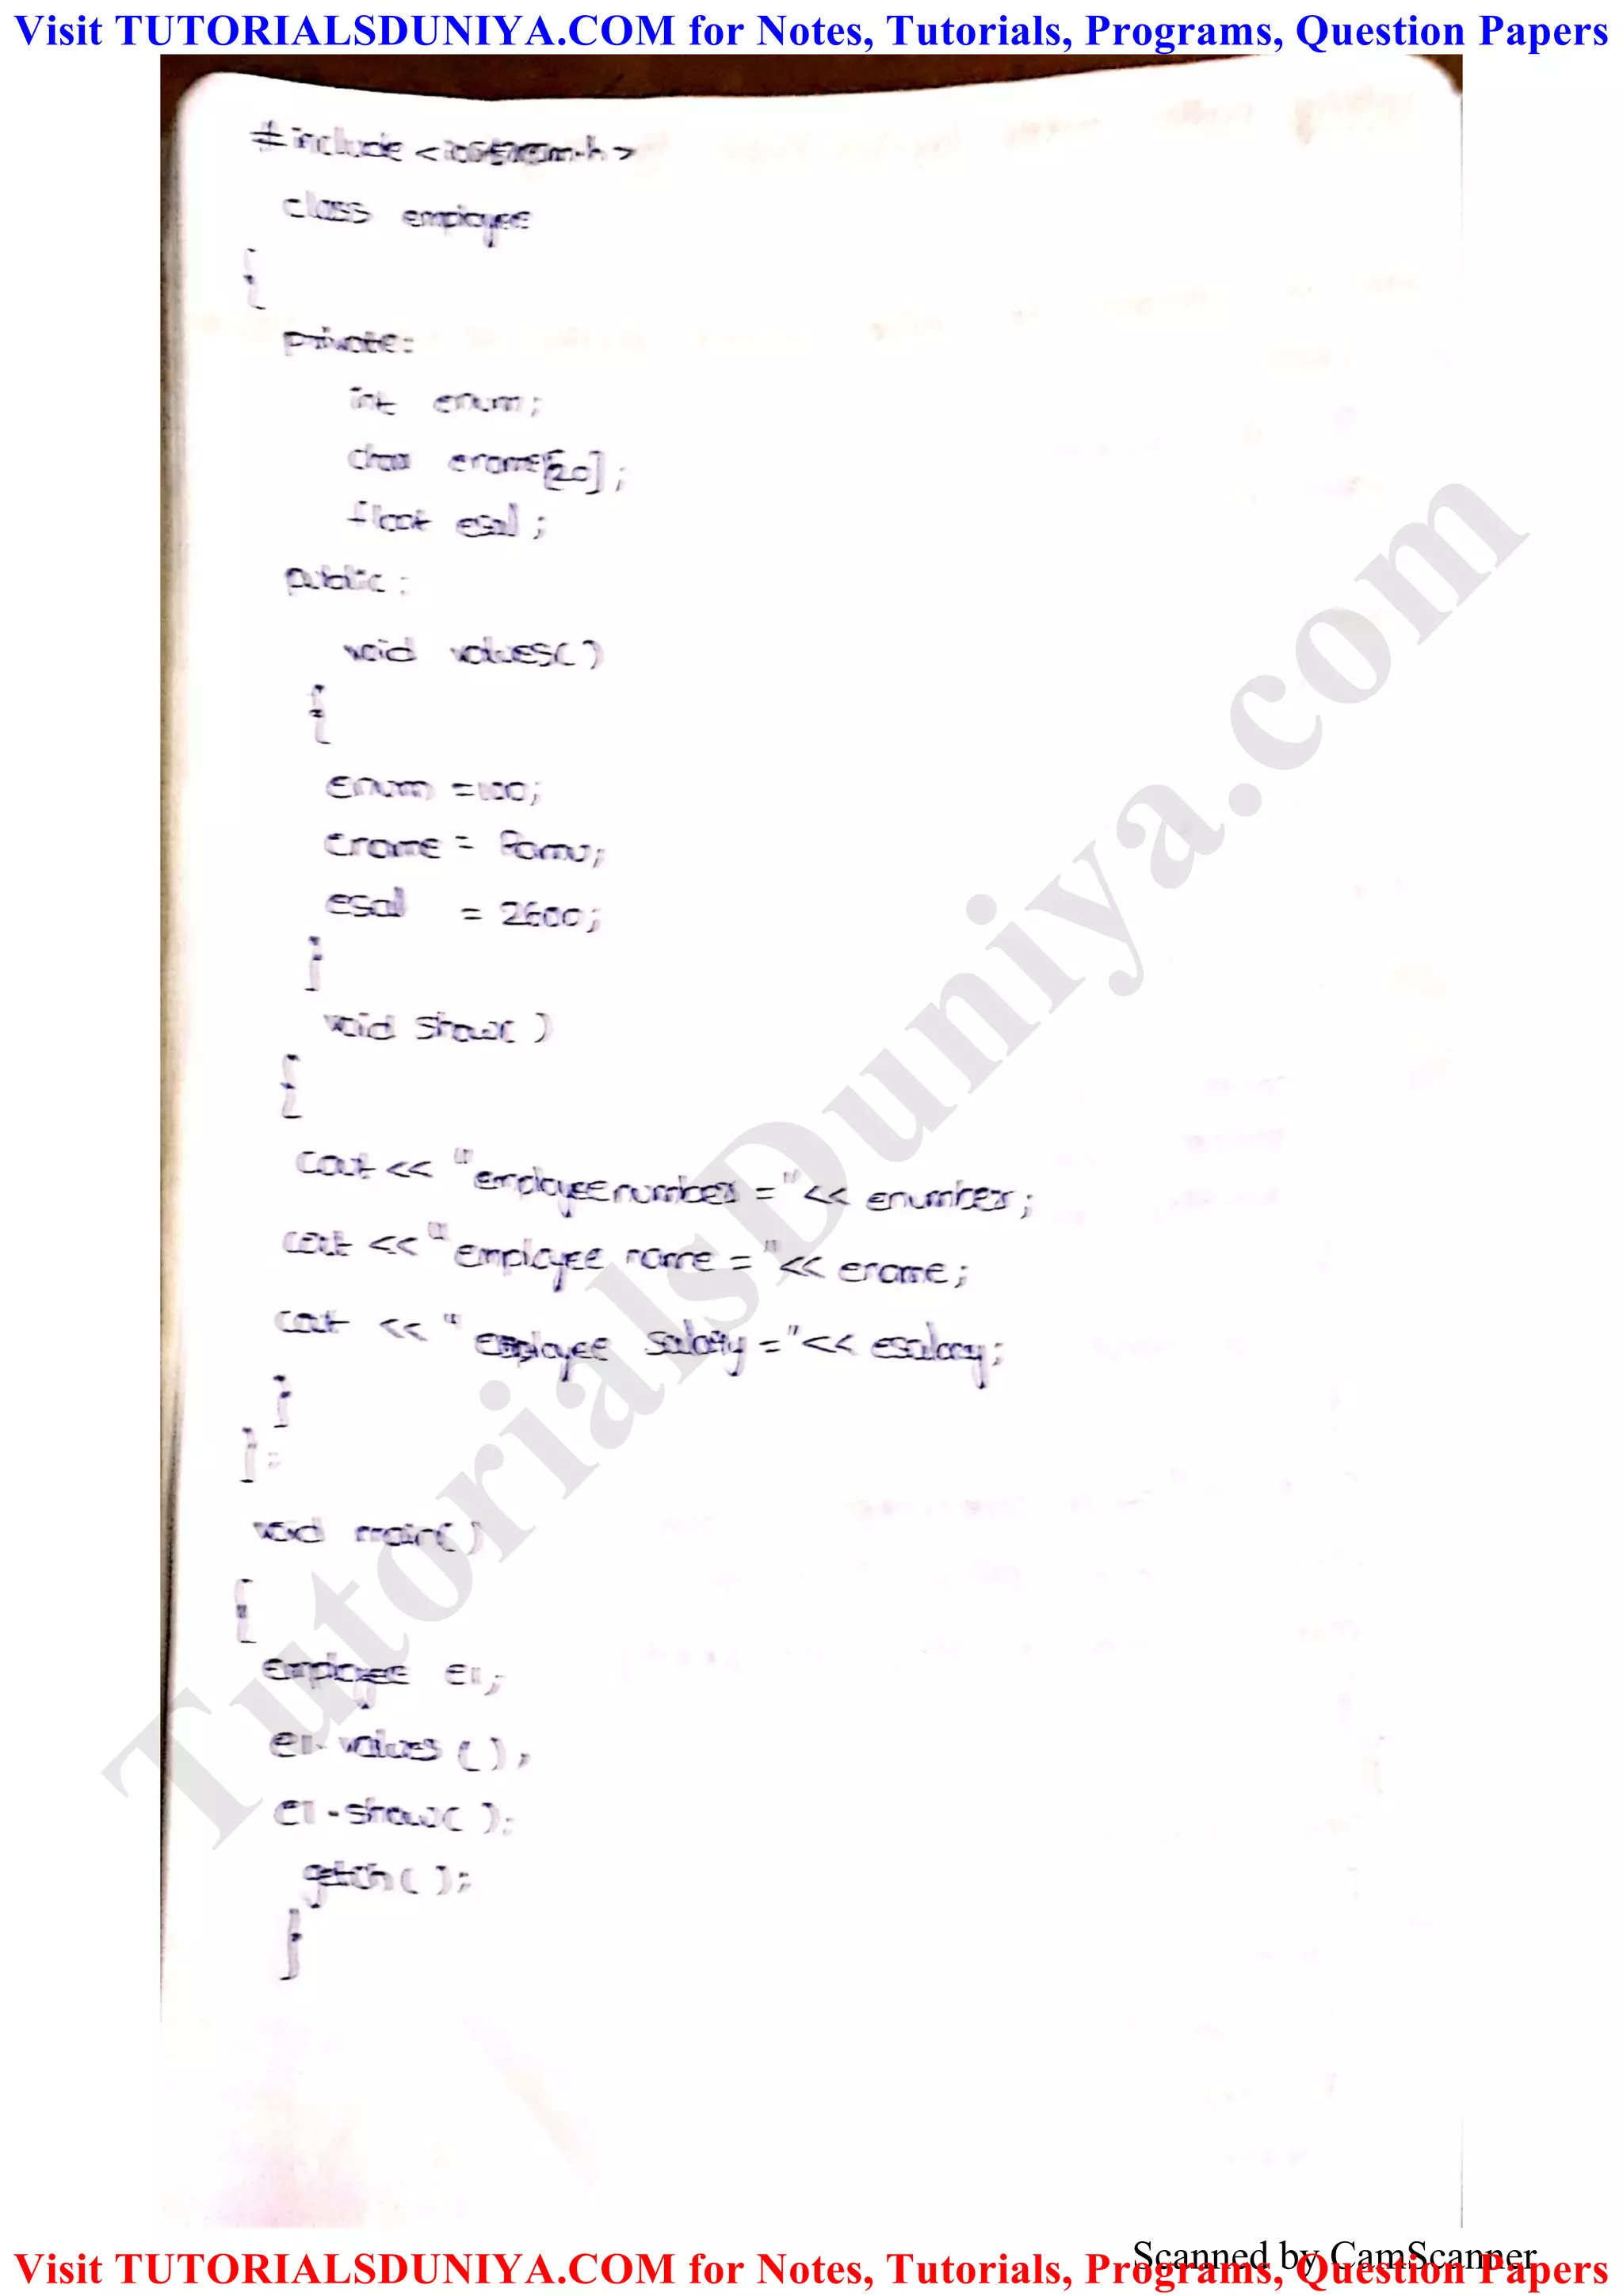 Visit TUTORIALSDUNIYA.COM for Notes, Tutorials, Programs, Question Papers
#include <iostream.h>
class employee
{
private:
int enum;
char ename[20];
float esal;
public:
void values()
{
enum =100;
ename = Ramu;
esal = 2600;
}
void show( )
{
cout << "employeenumber =" << enumber;
cout << "employee name =" << ename;
cout << "employee salary =" << esalary;
}
};
void main()
{
employee e1;
e1.values ( );
e1.show( );
getch( );
}
TutorialsDuniya.com
Scanned by CamScanner
Visit TUTORIALSDUNIYA.COM for Notes, Tutorials, Programs, Question Papers